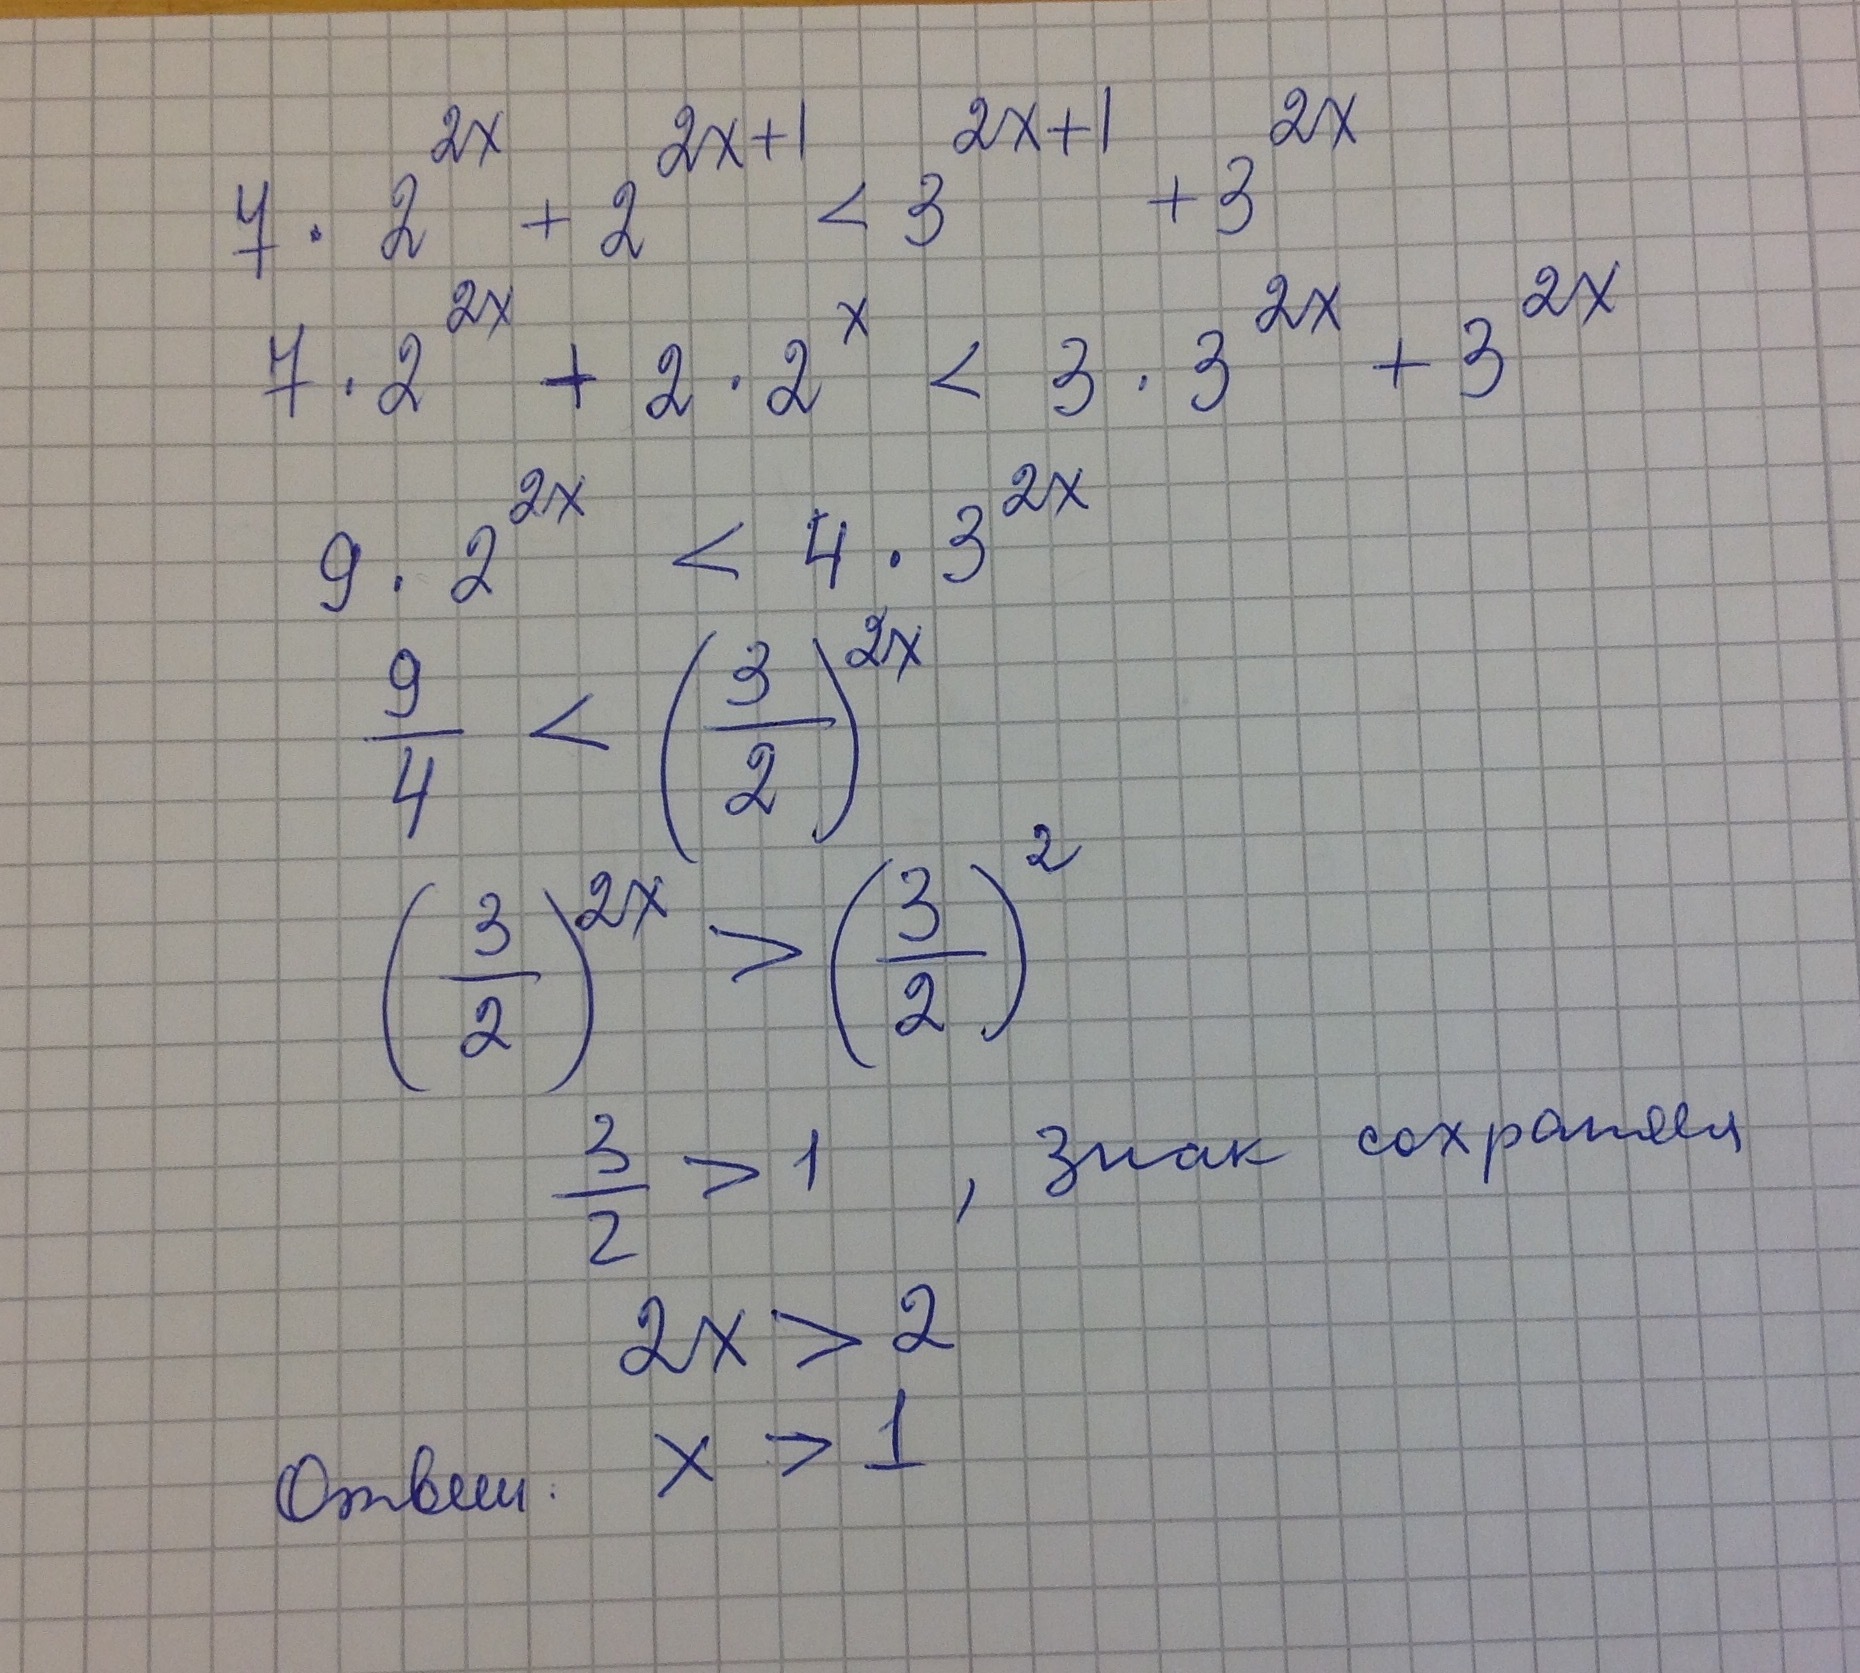 7 · 2^{2x} + 2^{2x+1} < 3^{2x+1} + 3^{2x}
7 · 2^{2x} + 2 · 2^{x} < 3 · 3^{2x} + 3^{2x}
9 · 2^{2x} < 4 · 3^{2x}
9/4 < (3/2)^{2x}
(3/2)^{2x} > (3/2)^{2}
3/2 > 1 , знак сохраняем
2x > 2
Ответ: x > 1